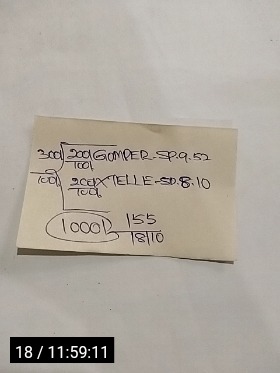 300/ 200/ GOMPER-SP.9.52
100/ 100/
200/ XTELLE-SP.8.10
100/
1000/ 155
18/10
18 / 11:59:11